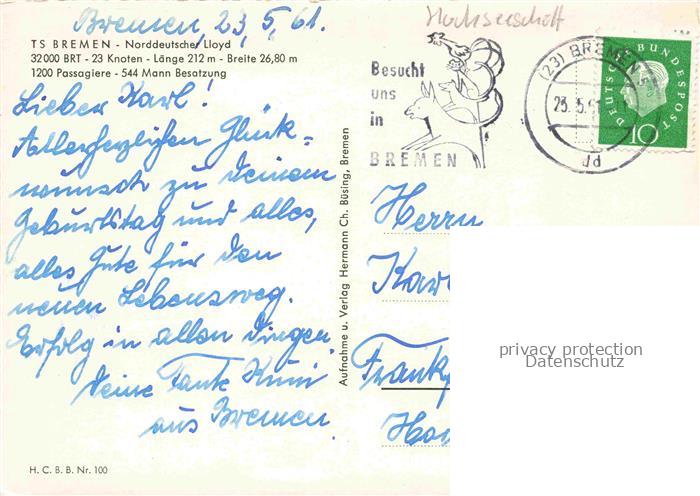 Bremen, 23, 5, 61.
TS BREMEN - Norddeutscher Lloyd
32000 BRT - 23 Knoten - Länge 212 m - Breite 26,80 m
1200 Passagiere - 544 Mann Besatzung
Lieber Karl!
Allerherzlichen Glück-
wunsch zu Deinem
Geburtstag und alles,
alles Gute für den
neuen Lebensweg.
Erfolg in allen Dingen
Deine Tante Kuni
aus Bremen
H. C. B. B. Nr. 100
Aufnahme u. Verlag Hermann Ch. Büsing, Bremen
Besucht
uns
in
BREMEN
(23) BREMEN 5
23.5.61
dd
DEUTSCHE BUNDESPOST
10
Herrn
Karl
privacy protection
Datenschutz